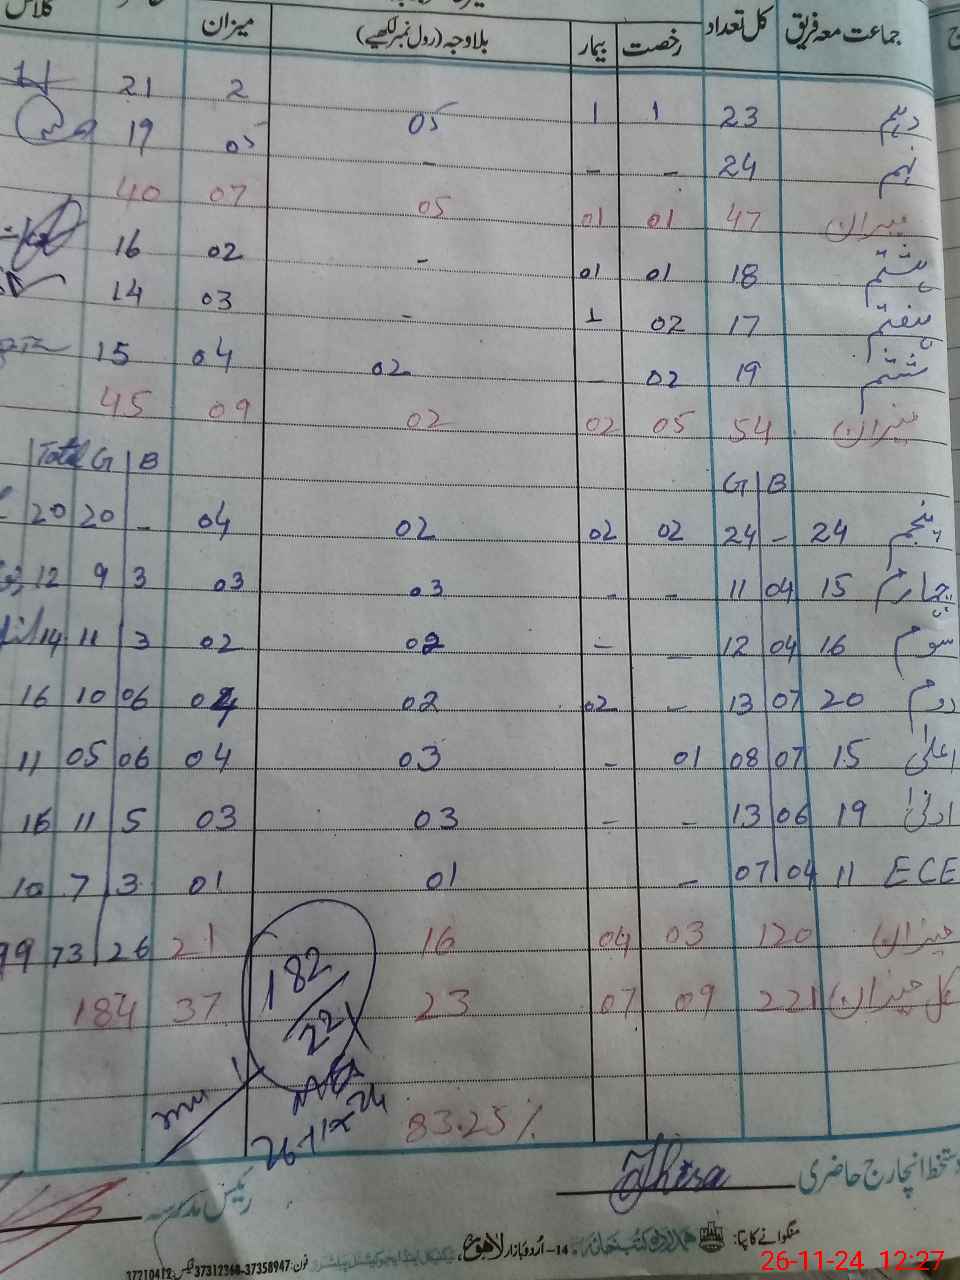 جماعت معہ فریق کل تعداد رخصت بیمار بلاوجہ (رول نمبر لکھیے) میزان کلاس
دہم 23 1 1 05 2 21
نہم 24 - - - 05 19
میزان 47 01 01 05 07 40
ہشتم 18 01 01 - 02 16
ہفتم 17 02 1 - 03 14
ششم 19 02 - 02 04 15
میزان 54 05 02 02 09 45
B G B G Total
پنجم 24 - 24 02 02 02 04 - 20 20
چہارم 15 04 11 - - 03 03 3 9 12
سوم 16 04 12 - - 02 02 3 11 14
دوم 20 07 13 - 02 02 04 06 10 16
اعلیٰ 15 07 08 01 - 03 04 06 05 11
ادنیٰ 19 06 13 - - 03 03 5 11 16
ECE 11 04 07 - 01 01 3 7 10
میزان 120 03 04 16 21 26 73 99
کل میزان 221 09 07 23 37 184
182
22
26-11-24
83.25 %
دستخط انچارج حاضری
رئیس مدرسہ
منگوانے کا پتا: ہمدرد کتب خانہ 14-اُردو بازار لاہور
فون: 37358947-37312368 فیکس: 37210412
26-11-24 12:27